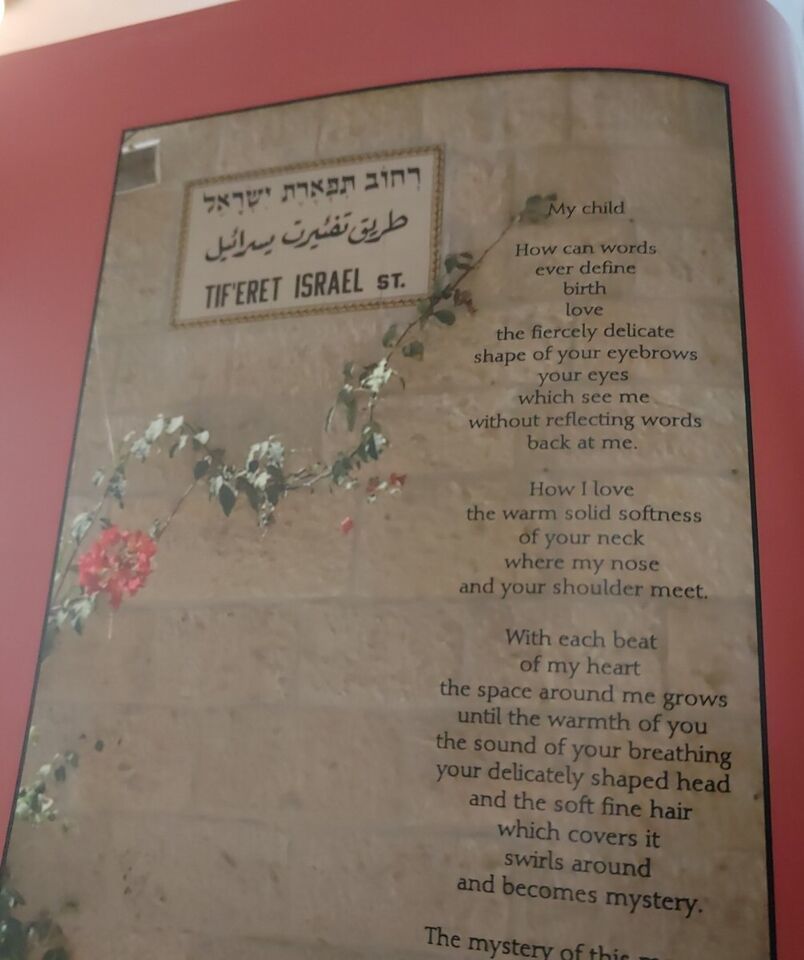 רְחוֹב תִּפְאֶרֶת יִשְׂרָאֵל
طريق تفئيرت يسرائيل
TIF'ERET ISRAEL ST.
My child
How can words
ever define
birth
love
the fiercely delicate
shape of your eyebrows
your eyes
which see me
without reflecting words
back at me.
How I love
the warm solid softness
of your neck
where my nose
and your shoulder meet.
With each beat
of my heart
the space around me grows
until the warmth of you
the sound of your breathing
your delicately shaped head
and the soft fine hair
which covers it
swirls around
and becomes mystery.
The mystery of this